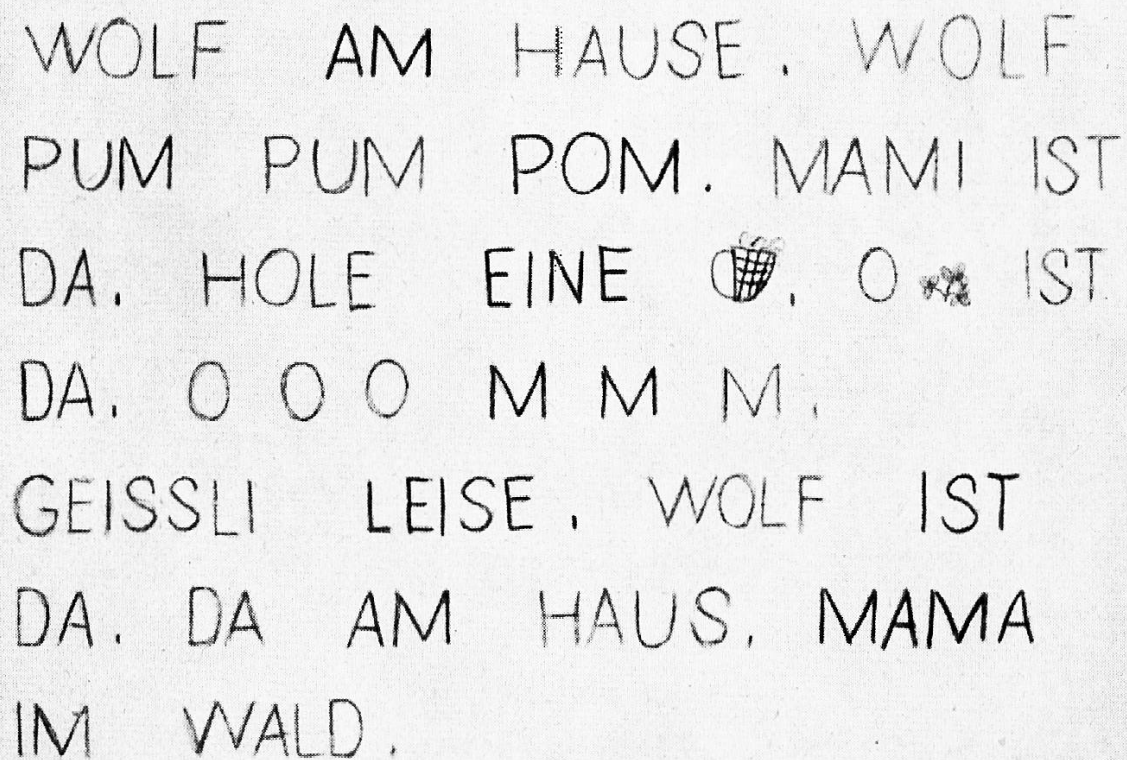 WOLF AM HAUSE. WOLF
PUM PUM POM. MAMI IST
DA. HOLE EINE . O IST
DA. O O O M M M.
GEISSLI LEISE. WOLF IST
DA. DA AM HAUS. MAMA
IM WALD.